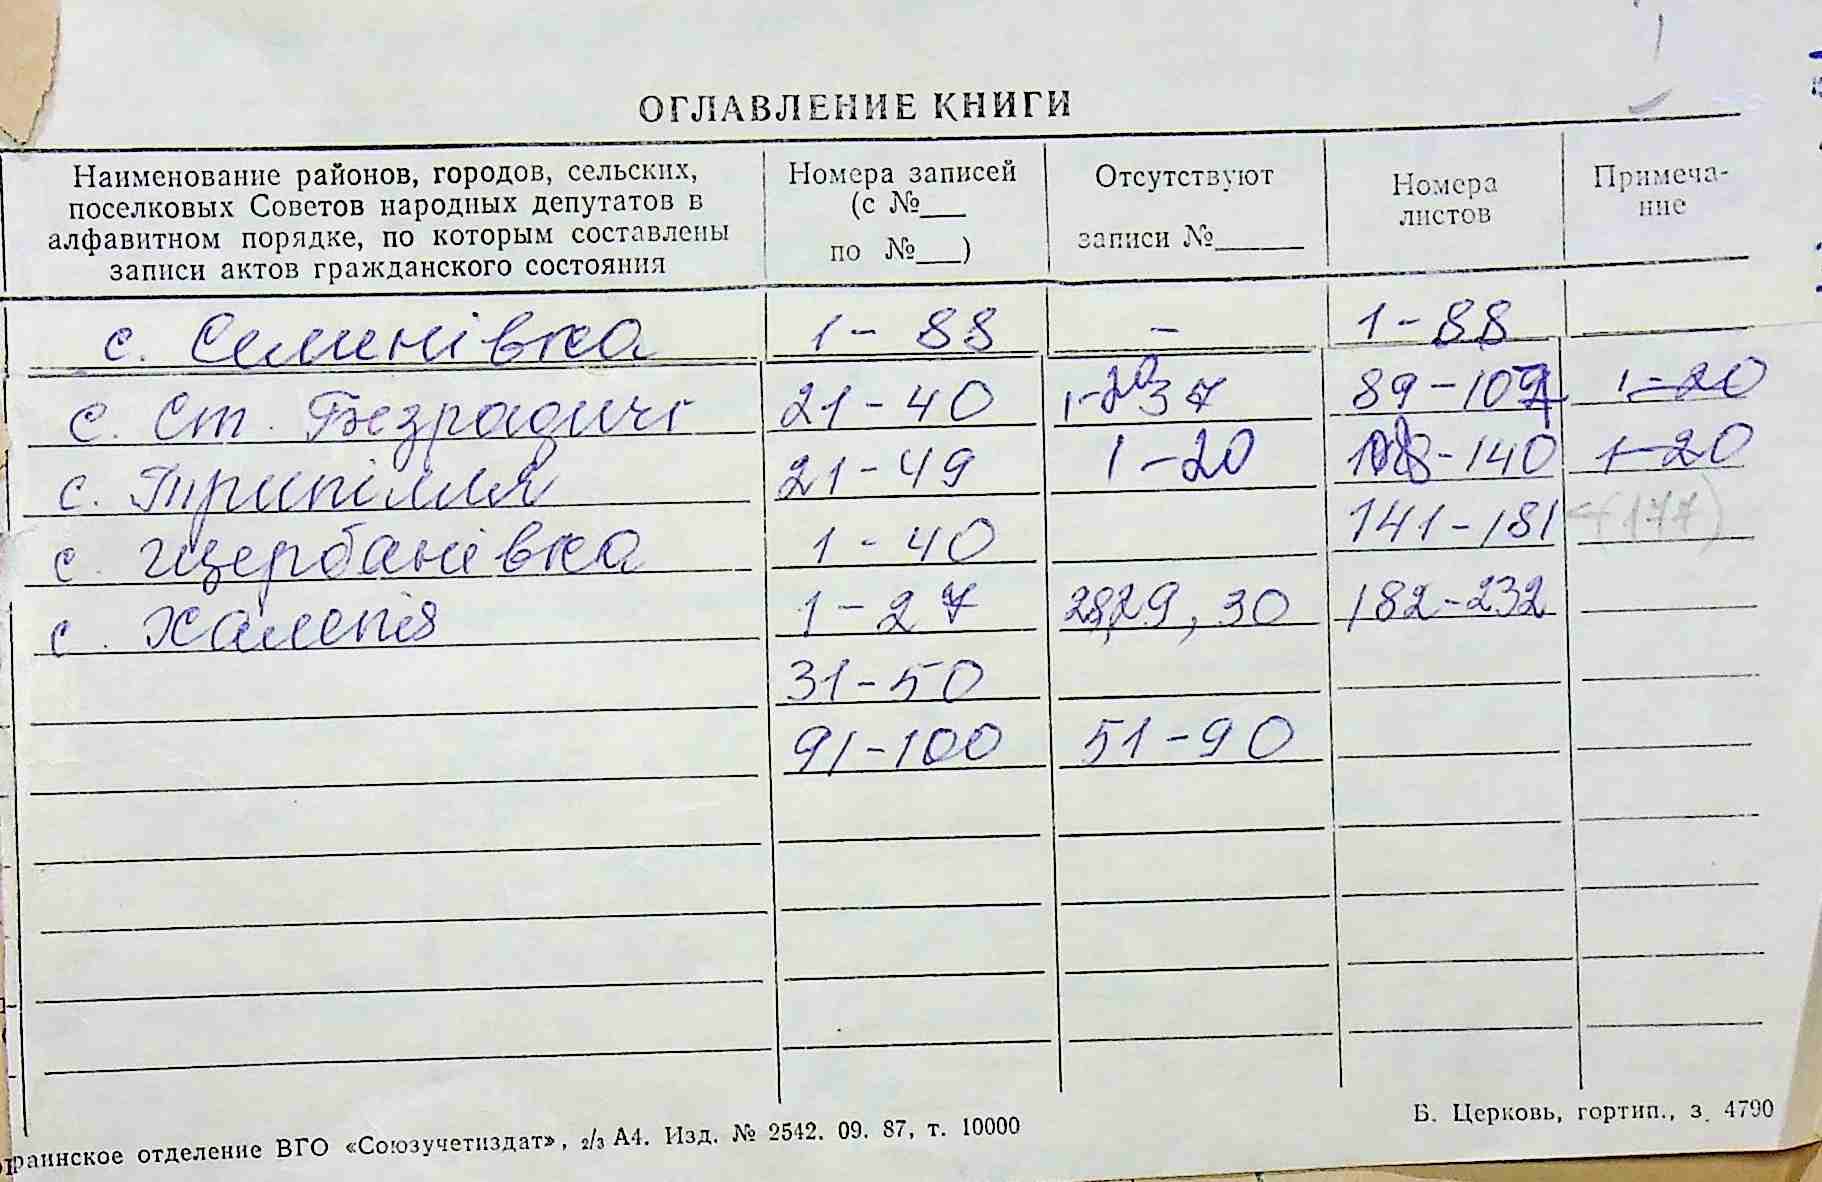 ОГЛАВЛЕНИЕ КНИГИ
Наименование районов, городов, сельских, поселковых Советов народных депутатов в алфавитном порядке, по которым составлены записи актов гражданского состояния
Номера записей (с №___ по №___)
Отсутствуют записи №______
Номера листов
Примеча-ние
с. Семенівка 1-88 - 1-88
с. Ст. Безрадичі 21-40 1-20 37 89-107 1-20
с. Трипілля 21-49 1-20 108-140 1-20
с. Щербанівка 1-40 141-181 (177)
с. Халепія 1-27 28,29,30 182-232
31-50
91-100 51-90
раинское отделение ВГО «Союзучетиздат», 2/3 А4. Изд. № 2542. 09. 87, т. 10000
Б. Церковь, гортип., з. 4790